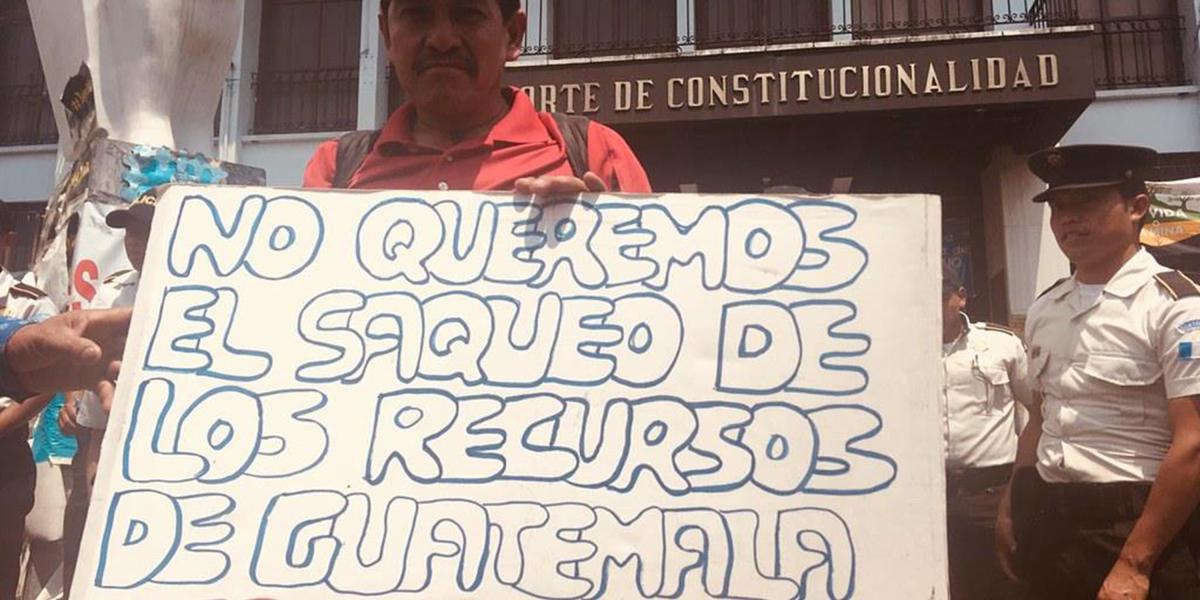 ORTE DE CONSTITUCIONALIDAD
NO QUEREMOS
EL SAQUEO DE
LOS RECURSOS
DE GUATEMALA
VIDA
S